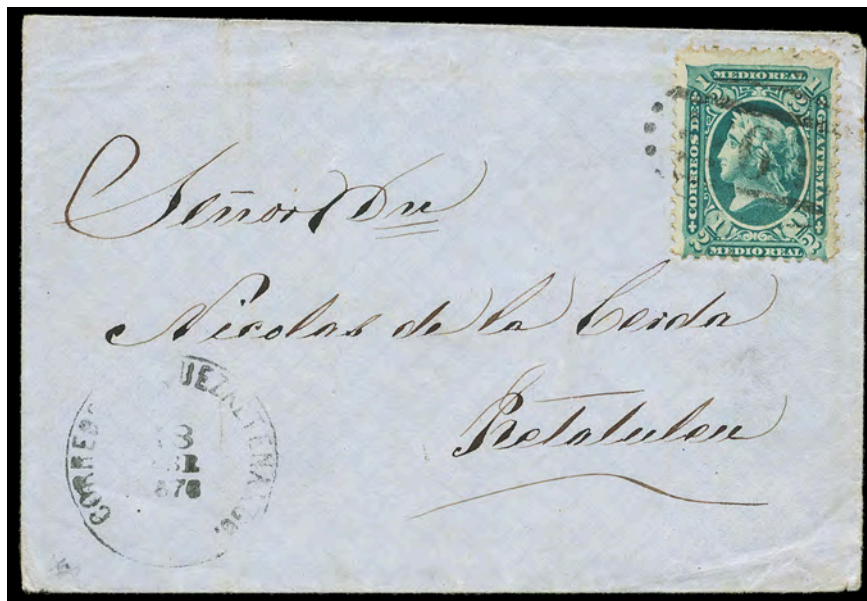 1 MEDIO REAL 1
2 2
CORREOS DE GUATEMALA
6
2 2
MEDIO REAL
Señor Dn
Nicolas de la Cerda
Retaluleu
CORREOS QUEZALTENANGO.